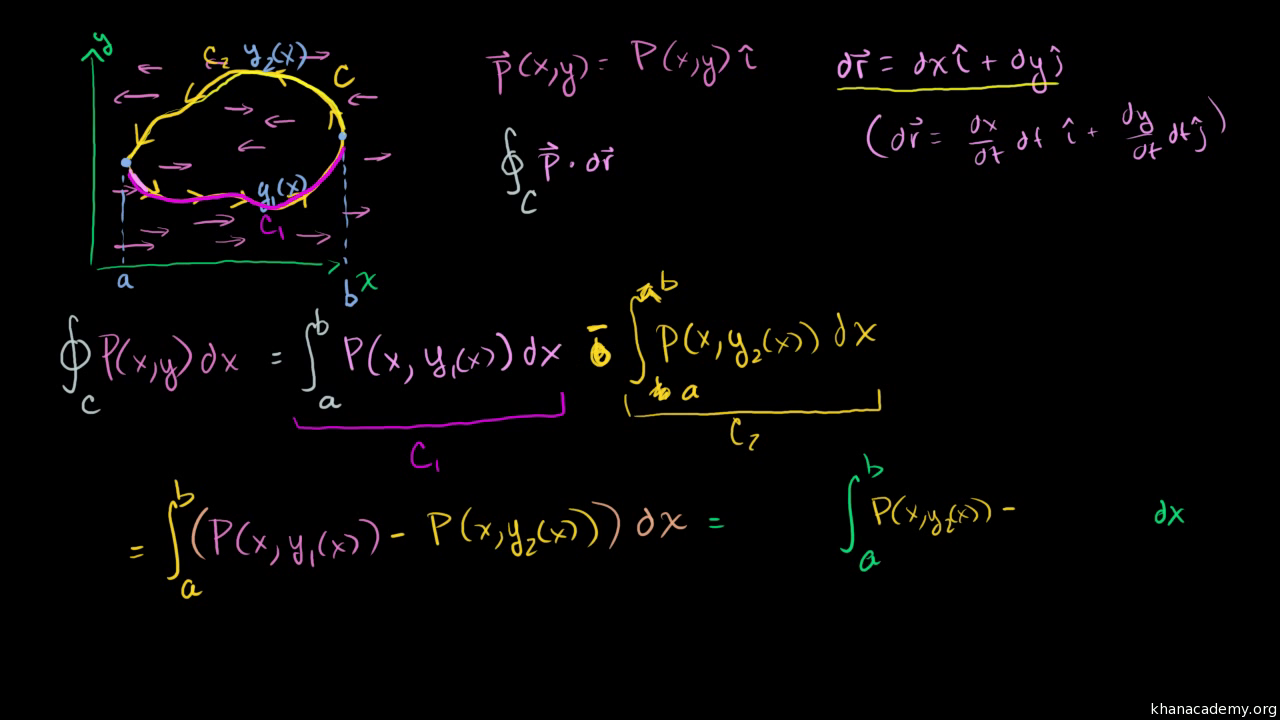 y
C₂ y₂(x) C
y₁(x)
C₁
a b x
p⃗(x,y) = P(x,y) î
∮_C p⃗ · dr⃗
dr⃗ = dx î + dy ĵ
(dr⃗ = dx/dt dt î + dy/dt dt ĵ)
∮_C P(x,y) dx = ∫_a^b P(x, y₁(x)) dx - ∫_a^b P(x, y₂(x)) dx
C₁ C₂
= ∫_a^b (P(x, y₁(x)) - P(x, y₂(x))) dx = ∫_a^b P(x, y₂(x)) - dx
khanacademy.org